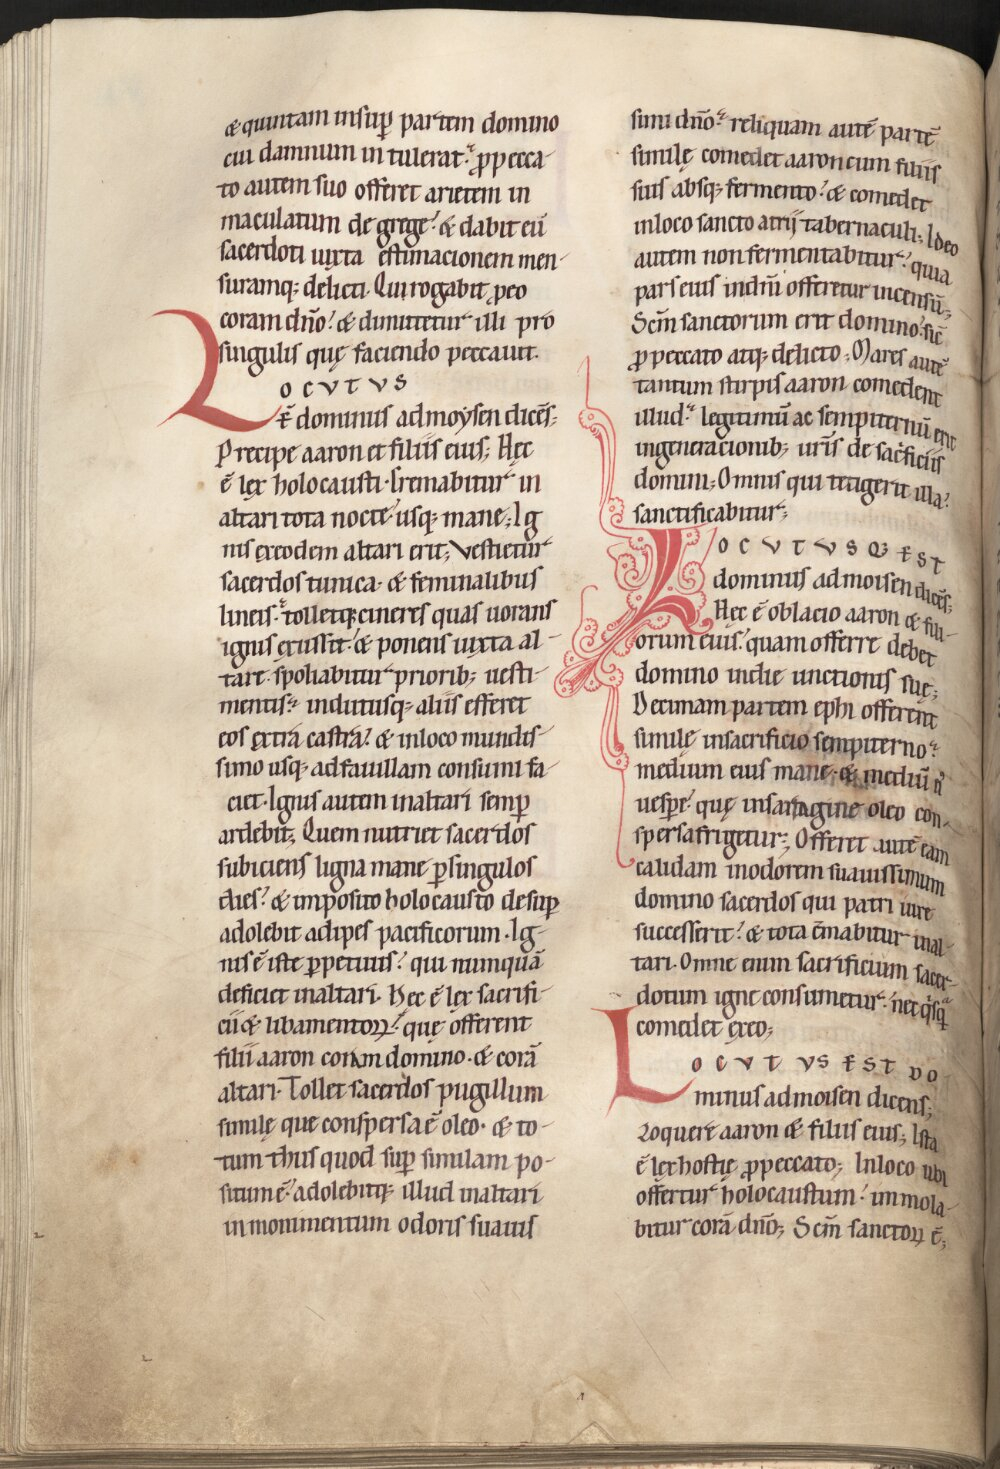 & quintam insup̱ partem domino
cui damnum intulerat. ꝓ pecca
to autem suo offeret arietem in
maculatum de grege. & dabit eū
sacerdoti iuxta estimacionem men-
suramq; delicti. Qui rogabit ꝓ eo
coram dño. & dimittetur illi pro
singulis quę faciendo peccauit.
LOCVTVS
ē dominus ad moysen dicēs;
Precipe aaron et filiis eius; Hęc
ē lex holocausti. Cremabitur in
altari tota nocte usq; mane; Ig
nis ex eodem altari erit; Vestietur
sacerdos tunica. & feminalibus
lineis. tolletq; cineres quas uorans
ignis exussit. & ponens iuxta al-
tare. spoliabitur priorib; uesti-
mentis. indutusq; aliis efferet
eos extra castra. & in loco mundis-
simo usq; ad fauillam consumi fa-
ciet. Ignis autem in altari semꝑ
ardebit; Quem nutriet sacerdos
subiciens ligna mane ꝑ singulos
dies. & imposito holocausto desuꝑ
adolebit adipes pacificorum. Ig-
nis ē iste ꝑpetuus. qui numquā
deficiet in altari. Hec ē lex sacrifi-
cii & libamentoꝝ. quę offerent
filii aaron coram domino. & corā
altari. Tollet sacerdos pugillum
similę que conspersa ē oleo. & to-
tum thus quod suꝑ similam po-
situm ē. adolebitq; illud in altari
in monimentum odoris suauis
simi dño. reliquam autē partē
similę comedet aaron cum filiis
suis absq; fermento. & comedet
in loco sancto atrii tabernaculi; Ideo
autem non fermentabitur. quia
pars eius in dñi offeretur incensū;
Scm̄ sanctorum erit domino. sic̄
ꝓ peccato atq; delicto; Mares autē
tantum stirpis aaron comedent
illud. legitimū ac sempiternū erit
in generacionib; uris̄ de sac̄ficiis
domini; Omnis qui tetigerit illa.
sanctificabitur;
LOCVTVSQ EST
dominus ad moisen dicēs;
Hęc ē oblacio aaron & fili-
orum eius. quam offerre debet
domino in die unctionis suę;
Decimam partem ephi offerent
similę in sacrificio sempiterno.
medium eius mane. & mediū ū
uesꝑe. quę in sartagine oleo con-
spersa frigetur; Offeret autē eam
calidam in odorem suauissimum
domino sacerdos qui patri iure
successerit. & tota c̄mabitur in al-
tari. Omne enim sacrificium sacer-
dotum igne consumetur. nec q̇sq̇
comedet ex eo;
LOCVTVS EST DO
minus ad moisen dicens;
Loquere aaron & filiis eius; Ista
ē lex hostię ꝓ peccato; In loco ubi
offertur holocaustum. immola-
bitur corā dño; Scm̄ sanctoꝝ ē;